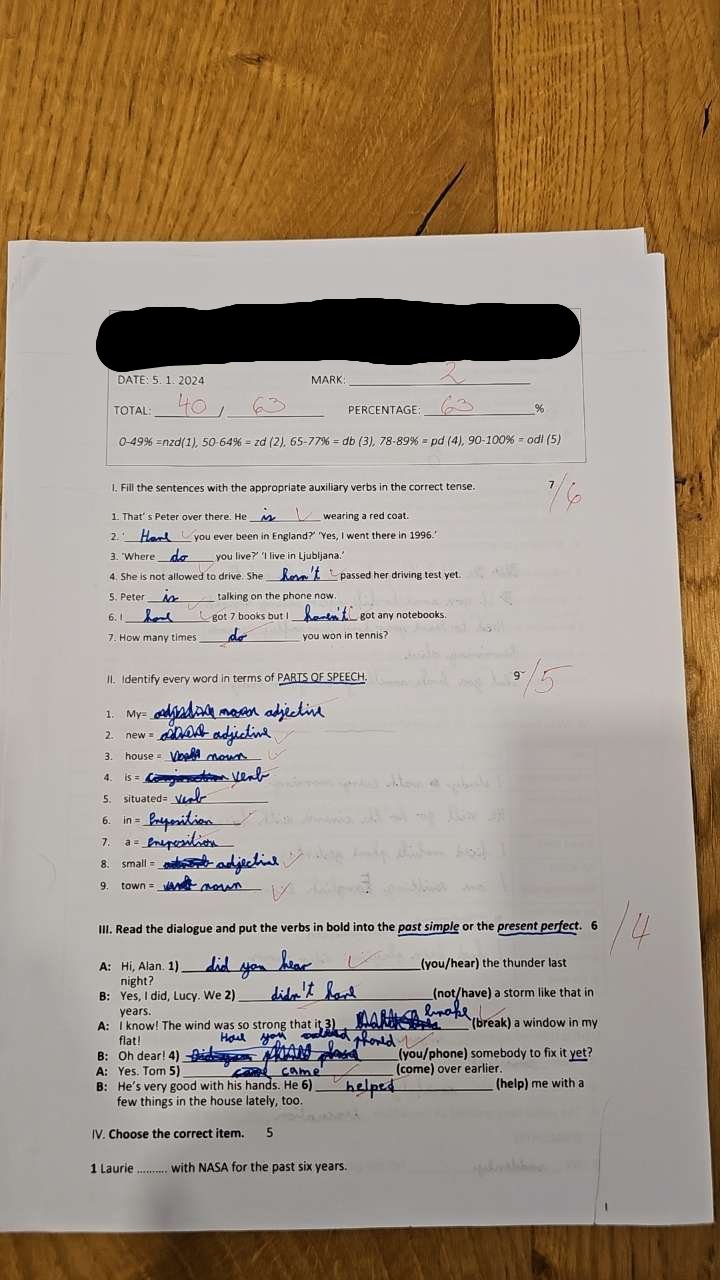 DATE: 5. 1. 2024 MARK: 2
TOTAL: 40 / 63 PERCENTAGE: 63 %
0-49% =nzd(1), 50-64% = zd (2), 65-77% = db (3), 78-89% = pd (4), 90-100% = odl (5)
I. Fill the sentences with the appropriate auxiliary verbs in the correct tense. 7/6
1. That's Peter over there. He is wearing a red coat.
2. ' Have you ever been in England?' 'Yes, I went there in 1996.'
3. 'Where do you live?' 'I live in Ljubljana.'
4. She is not allowed to drive. She hasn't passed her driving test yet.
5. Peter is talking on the phone now.
6. I have got 7 books but I haven't got any notebooks.
7. How many times do you won in tennis?
II. Identify every word in terms of PARTS OF SPEECH. 9/5
1. My= adjective
2. new = adjective
3. house = noun
4. is = verb
5. situated= verb
6. in = Preposition
7. a = Preposition
8. small = adjective
9. town = noun
III. Read the dialogue and put the verbs in bold into the past simple or the present perfect. 6 /4
A: Hi, Alan. 1) did you hear (you/hear) the thunder last
night?
B: Yes, I did, Lucy. We 2) didn't have (not/have) a storm like that in
years.
A: I know! The wind was so strong that it 3) broke (break) a window in my
flat!
B: Oh dear! 4) Have you phoned (you/phone) somebody to fix it yet?
A: Yes. Tom 5) came (come) over earlier.
B: He's very good with his hands. He 6) helped (help) me with a
few things in the house lately, too.
IV. Choose the correct item. 5
1 Laurie .......... with NASA for the past six years.
1